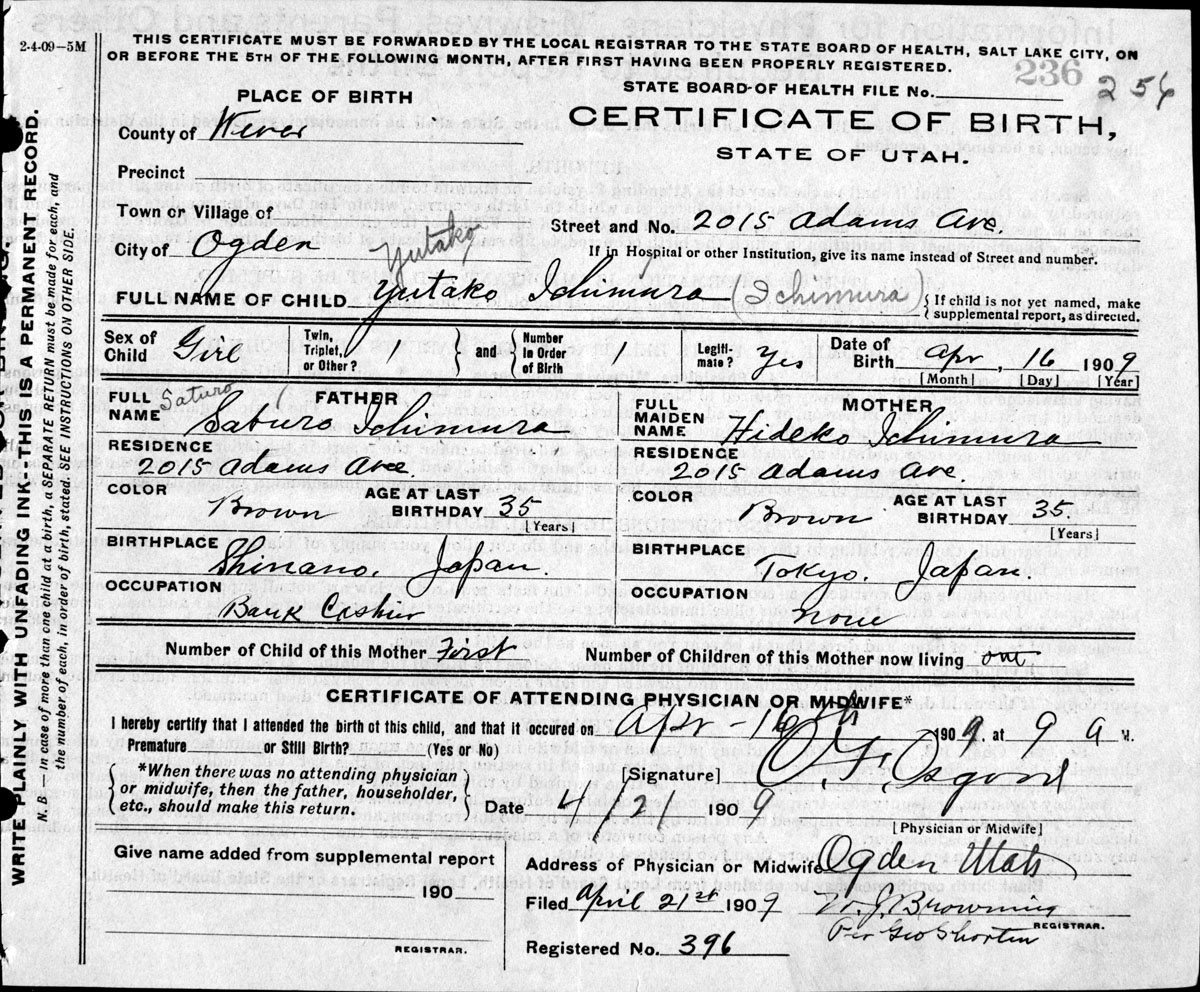 2-4-09-5M
THIS CERTIFICATE MUST BE FORWARDED BY THE LOCAL REGISTRAR TO THE STATE BOARD OF HEALTH, SALT LAKE CITY, ON
OR BEFORE THE 5TH OF THE FOLLOWING MONTH, AFTER FIRST HAVING BEEN PROPERLY REGISTERED.
236
STATE BOARD OF HEALTH FILE No. 256
PLACE OF BIRTH
CERTIFICATE OF BIRTH,
STATE OF UTAH.
County of Wever
Precinct
Town or Village of
Street and No. 2015 Adams Ave.
City of Ogden
If in Hospital or other Institution, give its name instead of Street and number.
Yutako
FULL NAME OF CHILD Yutako Ichimura (Ichimura) {If child is not yet named, make
supplemental report, as directed.
Sex of Child Girl Twin, Triplet, or Other? } and { Number in Order of Birth 1 Legiti-mate? yes Date of Birth Apr, 16 1909
[Month] [Day] [Year]
FATHER
FULL NAME Saburo Ichimura
Saturo
RESIDENCE
2015 Adams Ave
COLOR Brown AGE AT LAST BIRTHDAY 35
[Years]
BIRTHPLACE
Shinano, Japan.
OCCUPATION
Bank Cashier
MOTHER
FULL MAIDEN NAME Hideko Ichimura
RESIDENCE
2015 Adams Ave.
COLOR Brown AGE AT LAST BIRTHDAY 35.
[Years]
BIRTHPLACE
Tokyo, Japan.
OCCUPATION
none
Number of Child of this Mother First Number of Children of this Mother now living one
CERTIFICATE OF ATTENDING PHYSICIAN OR MIDWIFE*
I hereby certify that I attended the birth of this child, and that it occured on Apr - 16th 1909, at 9 a M.
Premature or Still Birth? (Yes or No)
{*When there was no attending physician
or midwife, then the father, householder,
etc., should make this return.}
[Signature] O. F. Osgood
Date 4/21 1909
[Physician or Midwife]
Give name added from supplemental report
190
REGISTRAR.
Address of Physician or Midwife Ogden Utah
Filed April 21st 1909 W. J. Browning
REGISTRAR.
Per Geo Shorten
Registered No. 396
WRITE PLAINLY WITH UNFADING INK--THIS IS A PERMANENT RECORD.
N. B.— In case of more than one child at a birth, a SEPARATE RETURN must be made for each, and
the number of each, in order of birth, stated. SEE INSTRUCTIONS ON OTHER SIDE.